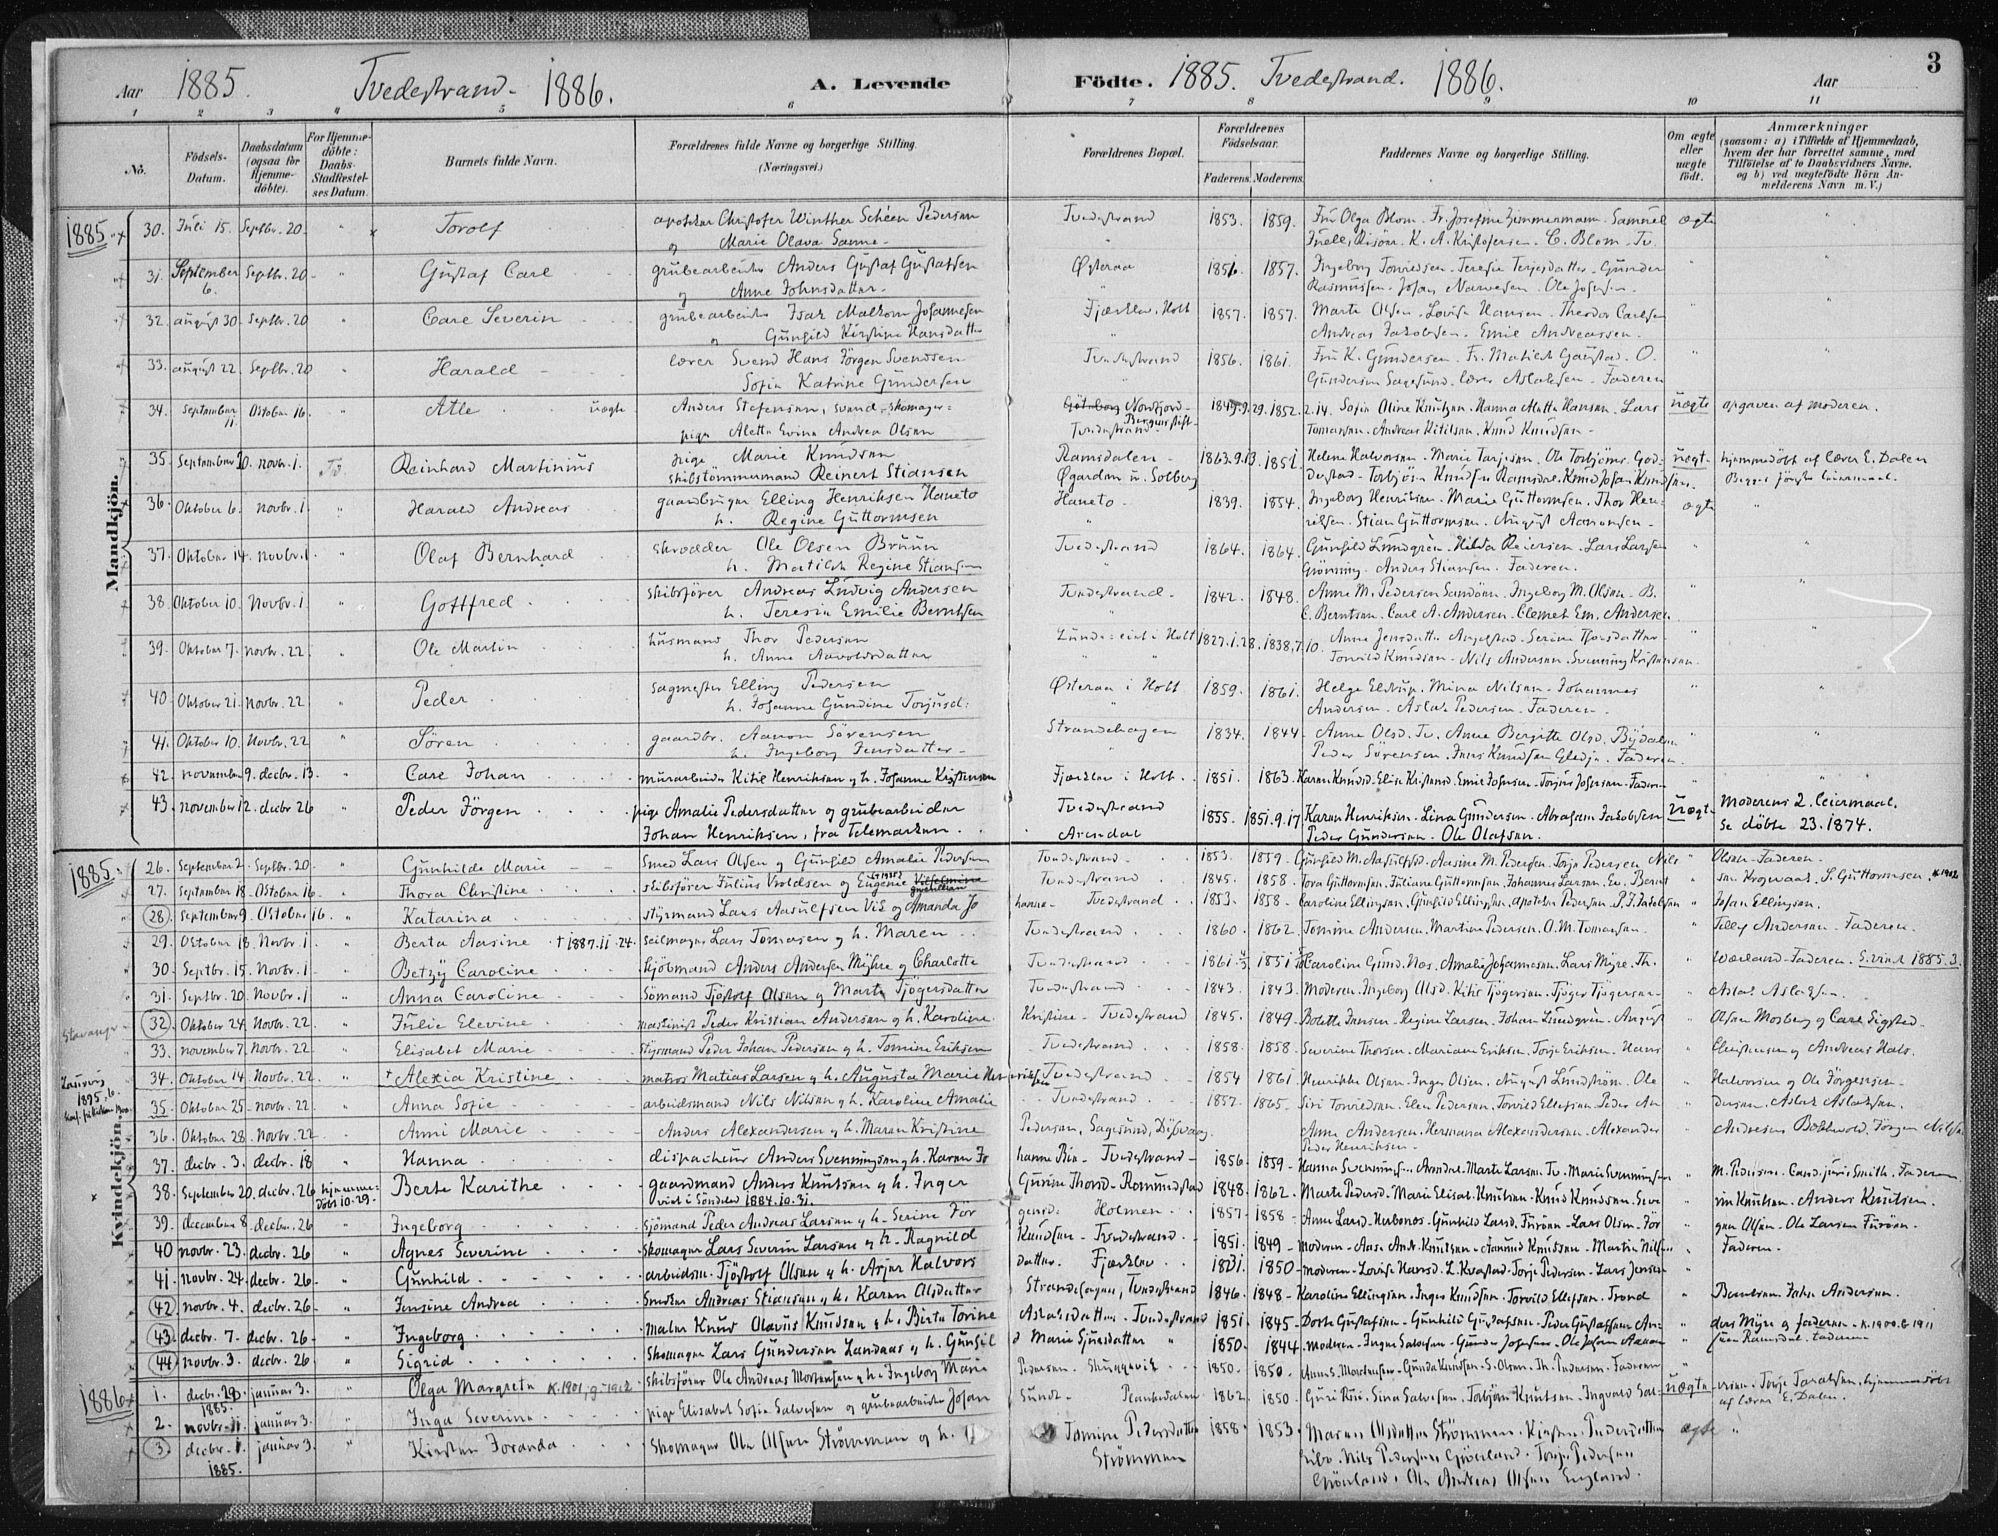 Aar 1885. Tvedestrand. 1886. A. Levende Födte. 1885. Tvedestrand. 1886. Aar 3
1 2 3 4 5 6 7 8 9 10 11
No. Födsels-Datum. Daabsdatum (ogsaa for Hjemme-döbte). For Hjemme-döbte: Daabs-Stadfæstel-ses Datum. Barnets fulde Navn. Forældrenes fulde Navne og borgerlige Stilling. (Næringsvei.) Forældrenes Bopæl. Forældrenes Födselsaar. Faderens. Moderens. Faddernes Navne og borgerlige Stilling. Om ægte eller uægte födt. Anmærkninger (saasom: a) i Tilfælde af Hjemmedaab, hvem der har forrettet samme, med Tilföielse af to Daabsvidners Navne. og b) ved uægtefödte Börn An-melderens Navn m. V.)
Mandkjön.
1885 30. Juli 15. Septbr. 20. Torolf apotheker Christofer Winther Scheen Pedersen Tvedestrand 1853. 1859. Fru Olga Blom. Fr. Josefine Zimmermann. Samuel ægte
og Marie Olava Sanne. Risöer. K. A. Kristofersen. C. Blom. Tv.
31. September 6. Septbr. 20 Gustaf Carl grubearbeider Anders Gustaf Gustafsen Østeraa 1857. Ingeborg Torvildsen. Teresie Terjesdatter. Gunder
og Anne Johnsdatter. Rasmussen. Johan Narvesen. Ole Josefsen.
32. august 30. Septbr. 20 Carl Severin grubearbeider Isak Malkom Johannesen Fjærkleiv. Holt 1857. 1857. Marte Olsen. Lovise Hansen. Theodor Carlsen
og Gunhild Kirstine Hansdatter Andreas Jakobsen. Emil Andreassen.
33. august 22. Septbr. 20 Harald lærer Svend Hans Jörgen Svendsen Tvedestrand 1856. 1861. Fru K. Gundersen. Fr. Matild Gaustad. O.
Sofie Katrine Gundersen Gundersen Sagesund. lærer Aslaksen. Faderen
34. September 11. October 16. Atle uægte Anders Stefensen, svend, skomager: Göteborg Nordfjord 1852. 2.14. Sofie Oline Knutsen. Hanna Aletta Hansen. Lars uægte opgaven af moderen.
pige Aletta Evine Andrea Olsen Tvedestrand Bergensstift Tomassen. Andreas Kitilsen. Knud Knudsen.
35. September 20. novbr. 1. Td. Reinhard Martinius pige Marie Knudsen Ramsdalen. 1863.9.13. 1851. Helene Halvorsen. Marie Tarjesen. Ole Torbjörns. God- uægte hjemmedöbt af lærer E. Dalen
skibstömmermand Reinert Stiansen Øgarden u. Solberg derstad. Torbjörn Knudsen Ramsdal. Knud Johan Knudsen. Begges förste leiermaal.
36. Oktober 6. novbr. 1. Harald Andreas gaardbruger Elling Henriksen Haneto Haneto 1839. 1854. Ingeborg Henriksen. Marie Guttormsen. Thor Hen- ægte
h. Regine Guttormsen riksen. Stian Guttormsen. August Aanonsen.
37. Oktober 14. novbr. 1. Olaf Bernhard skrædder Ole Olsen Bruun Tvedestrand 1864. 1864. Gunhild Lundgren. Hilda Reiersen. Lars Larsen
h. Matilde Regine Stiansen Grönning. Anders Stiansen. Faderen.
38. Oktober 10. Novbr. 1. Gottfred skibsförer Andreas Ludvig Andersen Tvedestrand. 1842. 1848. Anne M. Pedersen Sandöen. Ingeborg M. Olsen. B.
h. Teresia Emilie Berntsen C. Berntsen. Carl A. Andersen. Clemet Em. Andersen
39. Oktober 7. novbr. 22 Ole Martin husmand Thor Pedersen i Holt 1827.1.28. 1838.7.10. Anne Jensdatter Angelstad. Serine Thorsdatter.
h. Anne Aavoldsdatter Torvild Knudsen. Nils Andersen. Svenning Kristensen.
40. Oktober 21. Novbr. 22 Peder sagmester Elling Pedersen Østeraa i Holt 1859. 1861. Helge Elstrup. Mina Nilsen. Johannes
h. Josanne Gundine Torjusd: Andersen. Aslak Pedersen. Faderen.
41. Oktober 10. Novbr. 22 Sören gaardbr. Aanon Sörensen Strandehagen 1834. 1844. Anne Olsd. Tv. Anne Bergitte Olsd. Bydalen
h. Ingeborg Jensdatter. Peder Sörensen. Jens Knudsen Gledje. Faderen.
42. november 9. decbr. 13. Carl Johan murarbeider Kitil Henriksen og h. Josanne Kristensen Fjærkleiv i Holt. 1851. 1863. Karen Knudsd. Elise Kristensd. Emil Johnsen. Torjus Josefsen. Faderen
43. november 12. decbr 26 Peder Jörgen pige Amalie Pedersdatter og grubearbeider Tvedestrand 1855. 1851.9.17. Karen Henriksen. Lina Gundersen. Abraham Jakobsen uægte Moderens 2. leiermaal.
Johan Henriksen, fra Telemarken. Arendal Peder Gundersen. Ole Olafsen. Se döbte 23. 1874.
Kvindekjön.
1885. 26. September 2. Septbr. 20. Gunhilde Marie Smed Lars Olsen og Gunhild Amalie Pedersen Tvedestrand. 1853. 1859. Gunhild M. Aasulfsd. Aasine M. Pedersen. Torje Pedersen Nils Olsen. Faderen.
27. September 18. October 16. Thora Christine skibsförer Julius Vroldsen og Eugenie Tvedestrand. 1845. 1858. Tora Guttormsen. Juliane Guttormsen. Johannes Larsen. Ev. Bernt S. Guttormsen. K 1902
28. September 9. October 16. Katarina styrmand Lars Aasulfsen Vik og Amanda Jo hanne. Tvedestrand. 1853. 1858. Caroline Ellingsen. Gunhild Ellingsen. Apoteker Pedersen. P. J. Jakobsen Johan Ellingsen.
29. Oktober 18. Novbr. 1. Berta Aasine † 1887.11.24. Seilmager Lars Tomasen og h. Maren Tvedestrand. 1860. 1862. Tomine Andersen. Martine Pedersen. O. M. Tomassen. Tellef Andersen. Faderen.
30. Septbr. 15. Novbr. 1. Betzy Caroline kjöbmand Anders Andersen Myhre og Charlotte Tvedestrand. 1861. 1851 Caroline Gund. Næs. Amalie Johannesen. Lars Myre. Th. Faderen. 1885. 3.
31. Septbr. 20. Novbr. 1 Anna Caroline Sömand Tjöstolf Olsen og Marte Tjögersdatter Tvedestrand. 1843. 1843. Moderen. Ingeborg Olsd. Kitil Tjögersen. Tjöger Tjögersen. Aslak Aslaksen.
Stavanger 32. Oktober 24. Novbr. 22. Julie Elevine maskinist Peder Kristian Andersen og h. Karoline. Kristine. Tvedestrand 1845. 1849. Bolette Jensen. Regine Larsen. Johan Lundgren. August Olsen Mosberg og Carl Sigsted.
33. november 7. Novbr. 22. Elisabet Marie styrmand Peder Johan Pedersen og h. Tomine Eriksen Tvedestrand 1858. 1858. Severine Thorsen. Mariane Eriksen. Torje Eriksen. Hans Christensen og Andreas Hals.
Laurvig 1895. 34. Oktober 14. Novbr. 22. † Alexia Kristine matros Matias Larsen og h. Augusta Marie Hen riksen Tvedestrand. 1854 1861 Henrikke Olsen. Inger Olsen. August Lundström. Ole Halvorsen og Ole Jörgensen.
35. Oktober 25. Novbr. 22. Anna Sofie arbeidsmand Nils Nilsen og h. Karoline Amalie Tvedestrand. 1857. 1865. Siri Torvildsen. Elen Pedersen. Torvild Ellefsen. Peder An dersen. Aslak Aslaksen.
36. Oktober 28. Novbr. 22 Anni Marie Anders Alexandersen og h. Maren Kristine Pedersen, Sagesund, Dybvaag. Anne Andersen. Hermana Alexandersen. Alexander Andreas Jörgen Nilsen
Peder Henriksen.
37. decbr. 3. decbr. 18 Hanna dispacheur Anders Svenningsen og h. Karen Jo hanne Tvedestrand 1856. 1859. Hanna Svenningsen Arendal. Marte Larsen Tv. Marie Svenningsen M. Pedersen. Cand. juris Smith. Faderen
38. September 20. decbr. 26 hjemmedöbt 10.29. Berte Karithe gaardmand Anders Knutsen og h. Inger Gurine Thorsd. Ramundstad 1848. 1862. Marte Pedersd. Marie Elisab. Knutsen. Knud Knudsen. Anders Knutsen.
viet i Söndeled 1884.10.31.
39. december 8. decbr. 26 Ingeborg sjömand Peder Andreas Larsen og h. Serine Jör gensd. Holmen. 1857. 1858. Anne Larsd. Herbones. Gunhild Larsd. Furöen. Lars Olsen. Jör gen Olsen. Ole Larsen Furöen.
40 novbr. 23. decbr. 26 Agnes Severine Skomager Lars Severin Larsen og h. Ragnild Knudsen. Tvedestrand. 1851. 1849. Moderen. Aase Andr. Knutsen. Aanund Knudsen. Martin Nilsen Faderen.
41. novbr. 24. decbr. 26. Gunhild arbeidsm. Tjöstolf Olsen og h. Asjer Halvors datter. Fjærkleiv. 1850. moderen. Lovise Hansd. L. Kvastad. Torje Pedersen. Lars Jensen
42 novbr. 4. decbr. 26. Jensine Andrea Andreas Stiansen og h. Karen Olsdatter Strandehagen, Tvedestrand 1846. 1848. Karoline Ellingsen. Inger Knudsen. Torvild Ellefsen. Trond Berntsen. John Andersen.
43. decbr. 7. decbr. 26. Ingeborg maler Knud Olavus Knudsen og h. Birte Torine Aslaksdatter. Tvedestrand 1851. 1845. Dorte Gustafsen. Gunhild Gustafsen. Peder Gustafsen. An ders Myre og faderen. K. 1900. G 1911
44. novbr. 3. decbr. 26 Sigrid Skomager Lars Gundersen Landnes og h. Gunhil d Marie Gjersdatter 1850. 1844. Moderen. Inger Salvesen. Gunder Josefsen. Ole Johan Aanon sen Ramsdal. faderen
1886 1. decbr. 29. 1885. januar 3. Olga Margrete K. 1901, G. 1912 Skibsförer Ole Andreas Mortensen og h. Ingeborg Marie Pedersen. 1850. 1850. Anne S. Mortensen. Gunda Knudsen. S. Olsen. Th. Pedersen. Faderen
2. novbr. 11. januar 3. Inga Severine pige Elisabet Sofie Salvesen og grubearbeider Johan Sunde. Plankedalen 1862. 1850. Guri Röi. Sina Salvesen. Torbjörn Knutsen. Ingvald Sal- uægte Torje Taraldsen. hjemmedöbt af lærer E. Dalen.
3. decbr. 1. 1885. januar 3. Kirsten Foranda Skomager Ole Olsen Strömmen og h. Tomine Pedersdatter 1858. 1853. Maren Olsdatter Strömmen. Kirsten Pedersdatter ægte
Strömmen Nils Pedersen Gjöverland. Torje Pedersen
Ole Andreas Olsen England.